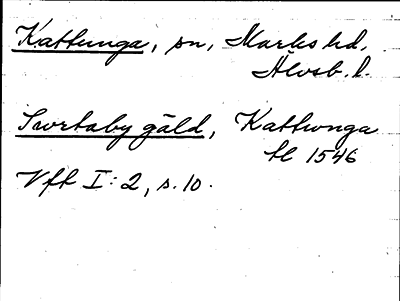 Kattunga, sn, Marks hd,
Älvsb. l.
Svortaby gäld, Kattwnga
tl 1546
Vft I: 2, s. 10.